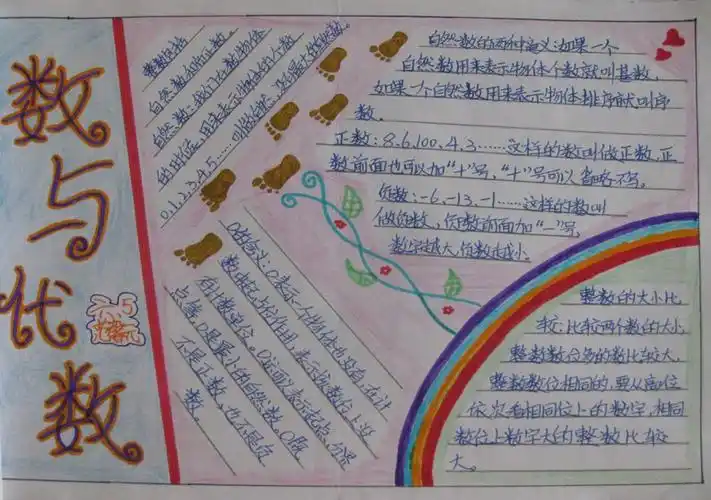 数与代数
六.5
整数包括
自然数和正数。
自然数:我们在数物体
的时候,用来表示物体的个数
0.1.2.3.4.5……叫做自然
自然数的两种意义:如果一个
自然数用来表示物体个数就叫基数,
如果一个自然数用来表示物体排序就叫序
数。
正数:8.6.100.4.3……这样的数叫做正数,正
数前面也可以加“+”号,“+”号可以省略不写。
负数:-6,-13,-1……这样的数叫
做负数,负数前面加“-”号,
数字越大,负数越小。
0的含义:0表示一个物体也没有,在计
数中起占位作用,表示该数位上没
有计数单位。0还可以表示起点,分界
点等,0是最小的自然数。0既
不是正数,也不是负
数。
整数的大小比
较:比较两个数的大小,
整数数位多的数比较大,
整数数位相同的,要从高位
依次看相同位上的数字,相同
数位上数字大的整数比较
大。